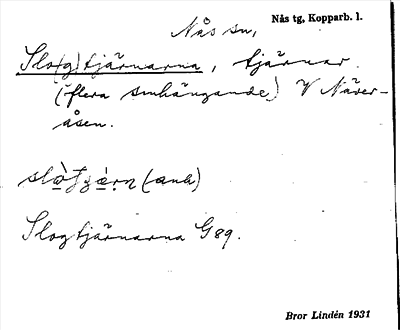 Nås sn,
Nås tg, Kopparb. l.
Slo(g)tjärnarna, tjärnar
(flera smhängande) V Näver-
åsen.
(anh)
Slogtjärnarna G89.
Bror Lindén 1931